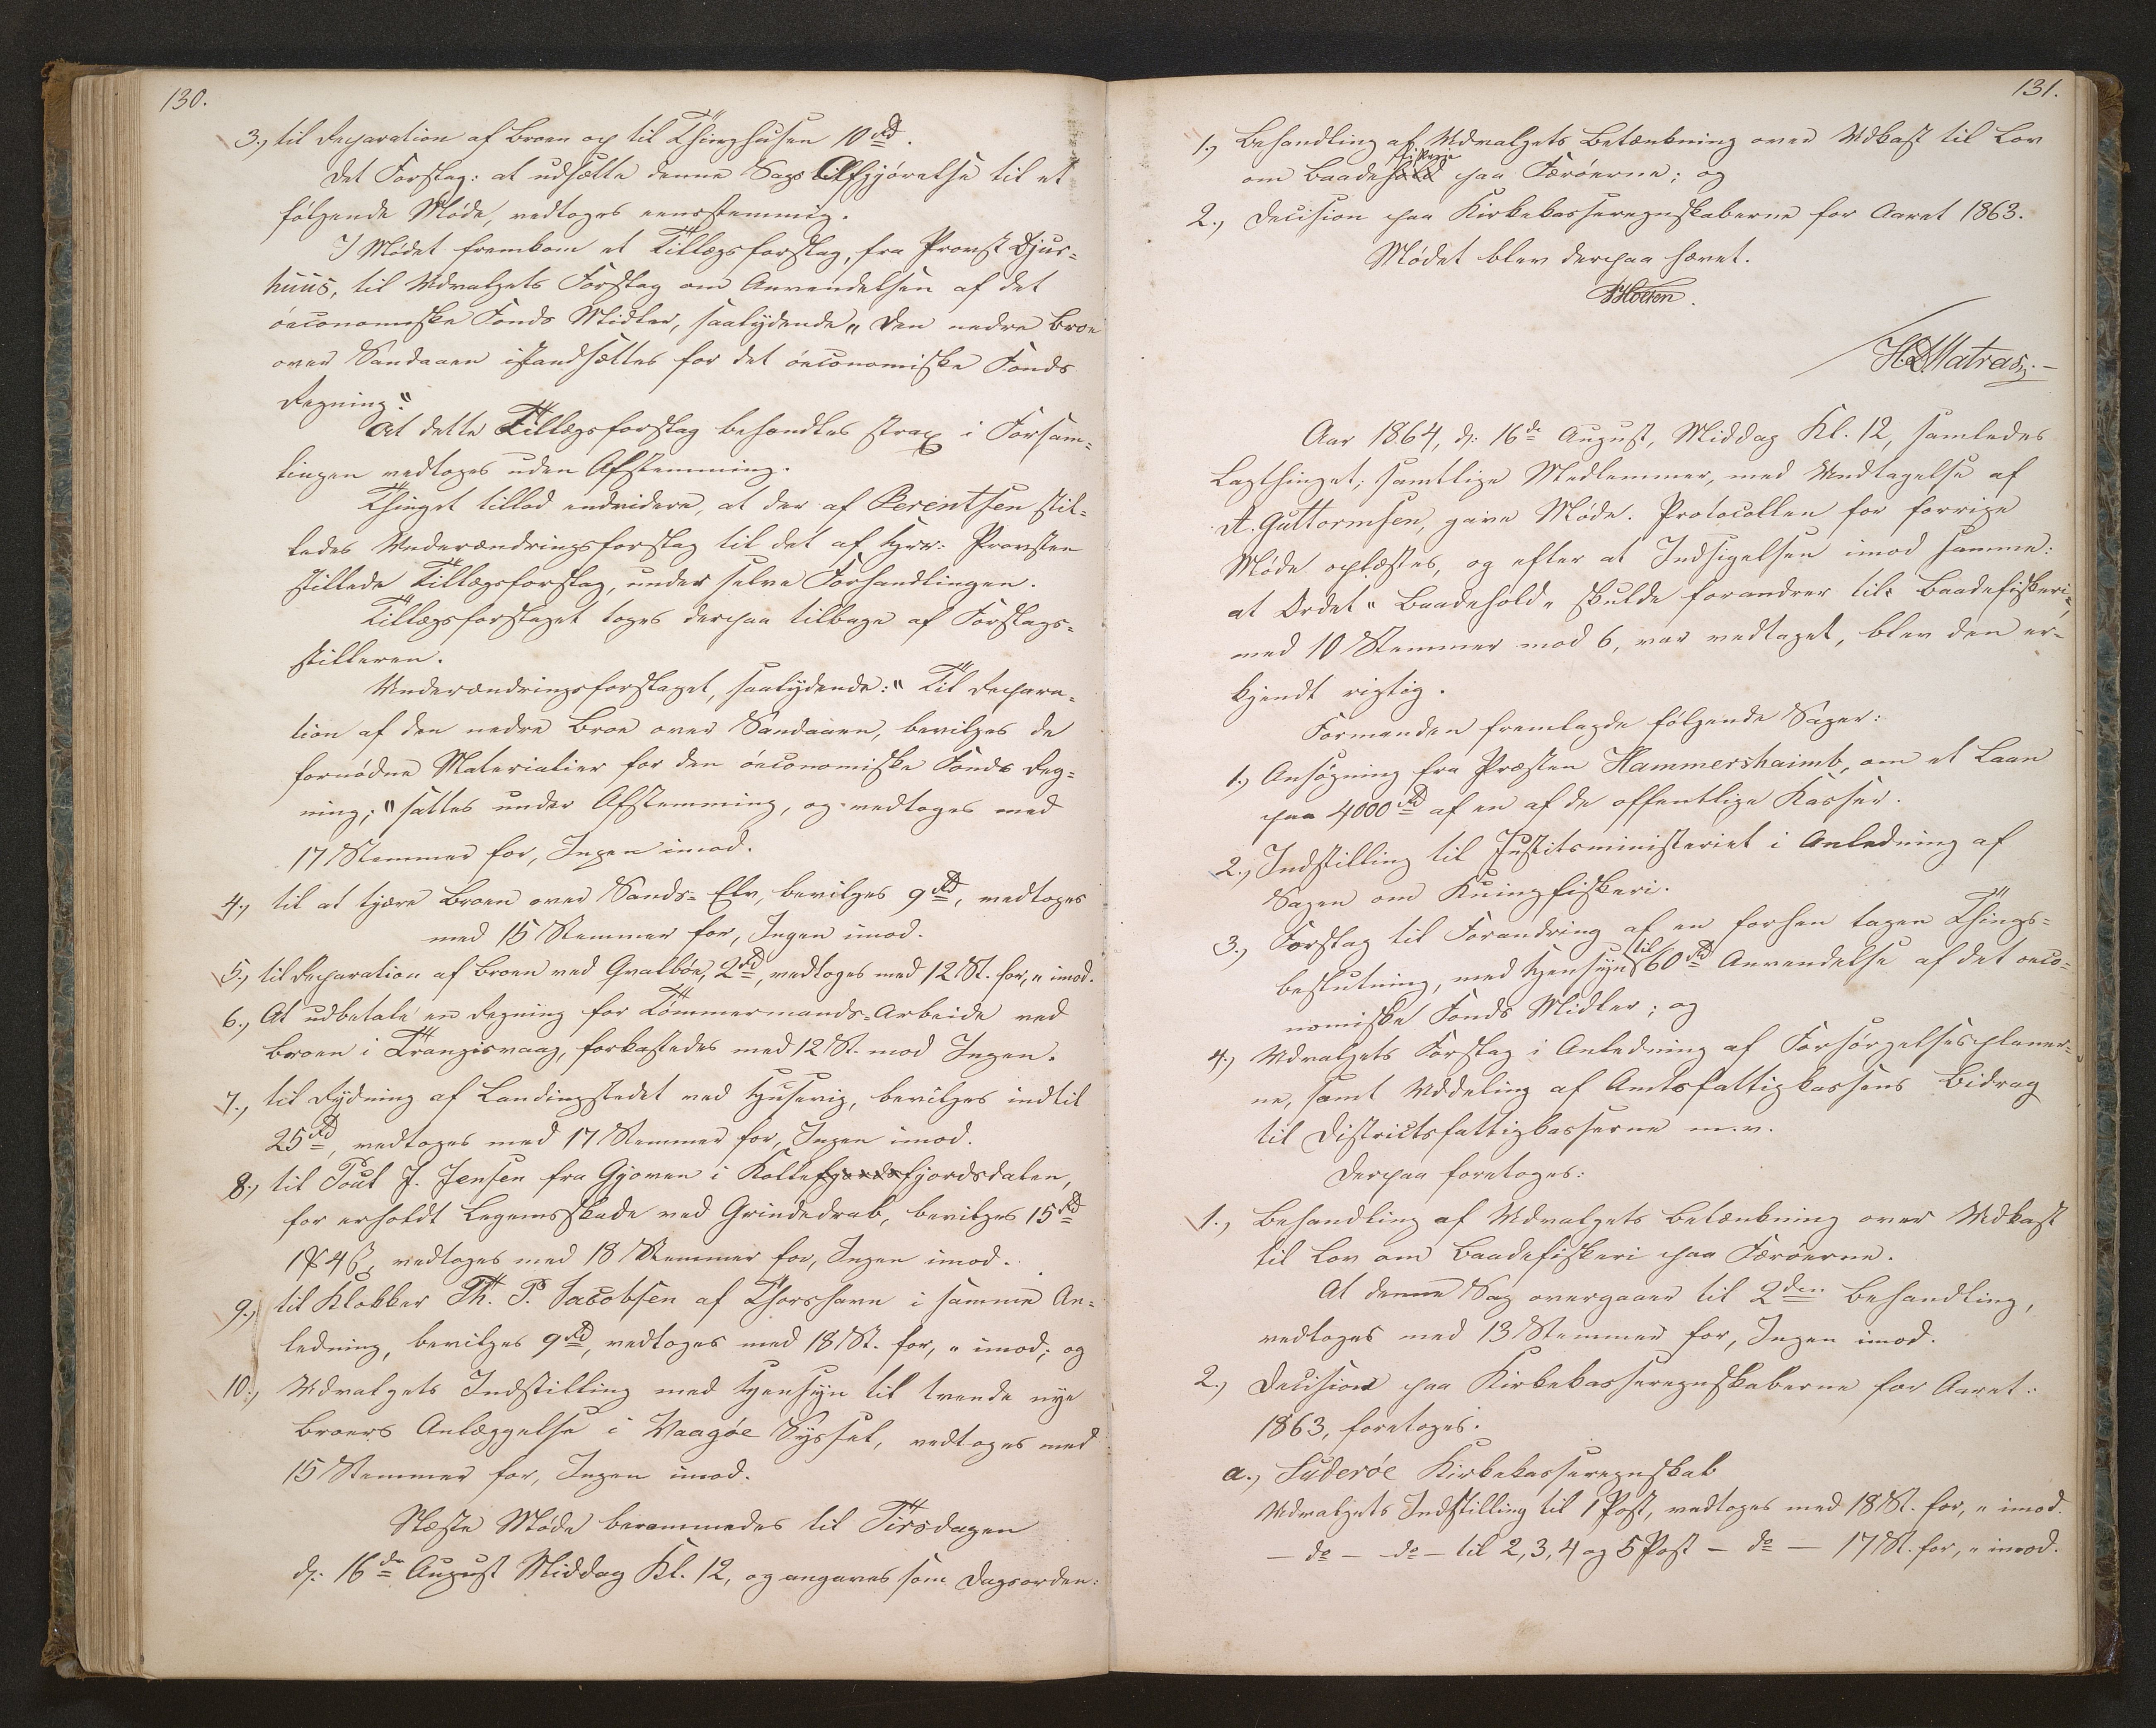 130.
3., til Reparation af Broen op til Thinghusen 10 Rd.
Det Forslag: at udsætte denne Sags Afgjørelse til et
følgende Møde, vedtoges eensstemmig.
I Mødet fremkom et Tillægsforslag, fra Provst Djur-
huus, til Udvalgets Forslag om Anvendelsen af det
øeconomiske Fonds Midler, saalydende „Den nedre Broe
over Sandaaen istandsættes for det øeconomiske Fonds
Regning."
At dette Tillægsforslag behandles strax i Forsam-
lingen vedtoges uden Afstemning.
Thinget tillod endvidere, at der af Berentsen stil-
ledes Underændringsforslag til det af Hrr: Provsten
stillede Tillægsforslag, under selve Forhandlingen.
Tillægsforslaget toges derpaa tilbage af Forslags-
stilleren.
Underændringsforslaget, saalydende: " Til Repara-
tion af den nedre Broe over Sandaaen, bevilges de
fornødne Materialier for den øeconomiske Fonds Reg-
ning;" sattes under Afstemning, og vedtoges med
17 Stemmer for, Ingen imod.
4., til at tjære Broen over Sands-Elv, bevilges 9 Rd, vedtoges
med 15 Stemmer for, Ingen imod.
5., til Reparation af Broen ved Qvalbøe, 2 Rd, vedtoges med 12 St. for, „ imod.
6., At udbetale en Regning for Tømmermands-Arbeide ved
Broen i Trangisvaag, forkastedes med 12 St. mod Ingen.
7., til Rydning af Landingstedet ved Husevig, bevilges indtil
25 Rd, vedtoges med 17 Stemmer for, Ingen imod.
8., til Poul J. Jensen fra Gjoven i Kollefjordsdalen,
for erholdt Legemsskade ved Grindedrab, bevilges 15 Rd
1 ℔ 4 ß, vedtoges med 18 Stemmer for, Ingen imod.
9., til Klokker Th. P. Jacobsen af Thorshavn i samme An-
ledning, bevilges 9 Rd, vedtoges med 18 St. for, „ imod; og
10., Udvalgets Indstilling med Hensyn til tvende nye
Broers Anlæggelse i Vaagøe Syssel, vedtoges med
15 Stemmer for, Ingen imod.
Næste Møde berammedes til Tirsdagen
d: 16de August Middag Kl. 12, og angaves som Dagsorden:
131.
1., Behandling af Udvalgets Betænkning over Udkast til Lov
om Baadefiskerie paa Færøerne; og
2., Decision paa Kirkekasseregnskaberne for Aaret 1863.
Mødet blev derpaa hævet.
HMatras.
Aar 1864, d: 16de August, Middag Kl. 12, samledes
Lagthinget; samtlige Medlemmer, med Undtagelse af
A. Guttormsen, gave Møde. Protocollen for forrige
Møde oplæstes, og efter at Indsigelsen imod samme:
at Ordet " Baadehold " skulde forandrer til " Baadefiskeri",
med 10 Stemmer mod 6, var vedtaget, blev den er-
kjendt rigtig.
Formanden fremlagde følgende Sager:
1., Ansøgning fra Præsten Hammershaimb, om et Laan
paa 4000 Rd af en af de offentlige Kasser.
2., Indstilling til Justitsministeriet i Anledning af
Sagen om Kuingfiskeri.
3., Forslag til Forandring af en forhen tagen Things-
beslutning, med Hensyn til 60 Rd Anvendelse af det oeco-
nomiske Fonds Midler; og
4., Udvalgets Forslag i Anledning af Forsørgelsesplaner-
ne, samt Uddeling af Amtsfattigkassens Bidrag
til Districtsfattigkasserne m.v.
Derpaa foretoges:
1., Behandling af Udvalgets Betænkning over Udkast
til Lov om Baadefiskeri paa Færøerne.
At denne Sag overgaaer til 2den Behandling,
vedtoges med 13 Stemmer for, Ingen imod.
2., Decision paa Kirkekasseregnskaberne for Aaret:
1863, foretoges.
a., Suderøe Kirkekasseregnskab
Udvalgets Indstilling til 1 Post, vedtoges med 18 St. for, „ imod.
— do — do — til 2, 3, 4 og 5 Post — do — 17 St. for, „ imod.